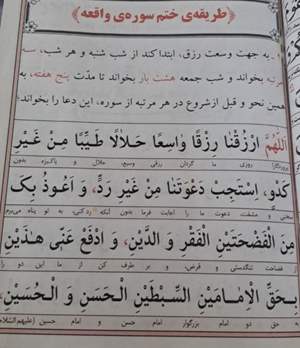 طریقه‌ی ختم سوره‌ی واقعه
به جهت وسعت رزق، ابتدا کند از شب شنبه و هر شب، سه
مرتبه بخواند و شب جمعه هشت بار بخواند تا مدّت پنج هفته، به
همین نحو و قبل از شروع در هر مرتبه از سوره، این دعا را بخواند؛
اَللّٰهُمَّ ارْزُقْنٰا رِزْقًا وٰاسِعًا حَلاٰلًا طَیِّبًا مِنْ غَیْرِ
پروردگارا روزی ما گردان رزقی وسیع، حلال و پاکیزه بدون
کَدٍّ، وَ اسْتَجِبْ دَعْوَتَنٰا مِنْ غَیْرِ رَدٍّ، وَ اَعُوذُ بِکَ
سختی و مشقت، دعوت ما را اجابت فرما بدون آنکه رد کنی، به تو پناه می‌برم
مِنَ الْفَضْحَتَیْنِ الْفَقْرِ وَ الدَّیْنِ، وَ ادْفَعْ عَنّٖی هٰذَیْنِ
از فضاحت تنگدستی و قرض، و بر طرف کن از ما این دو را
بِحَقِّ الْاِمٰامَیْنِ السِّبْطَیْنِ الْحَسَنِ وَ الْحُسَیْنِ،
به حق دو امام بزرگوار امام حسن و امام حسین (علیهم السلام